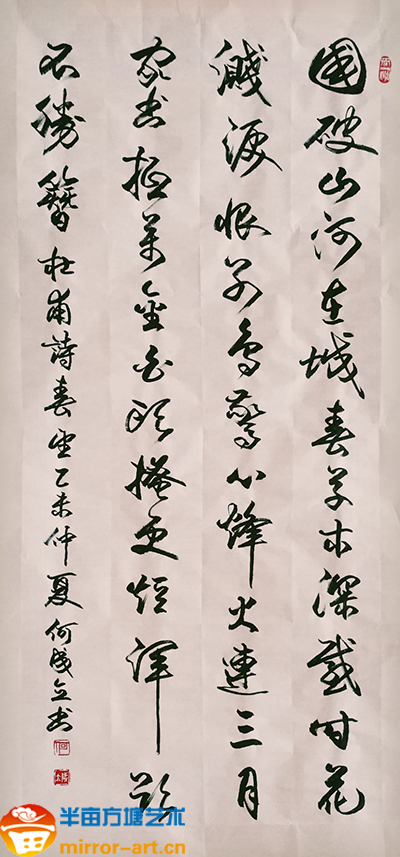 國破山河在城春草木深感時花
濺淚恨別鳥驚心烽火連三月
家書抵萬金白頭搔更短渾欲
不勝簪杜甫詩春望乙未仲夏何成立書
半亩方塘艺术
mirror-art.cn